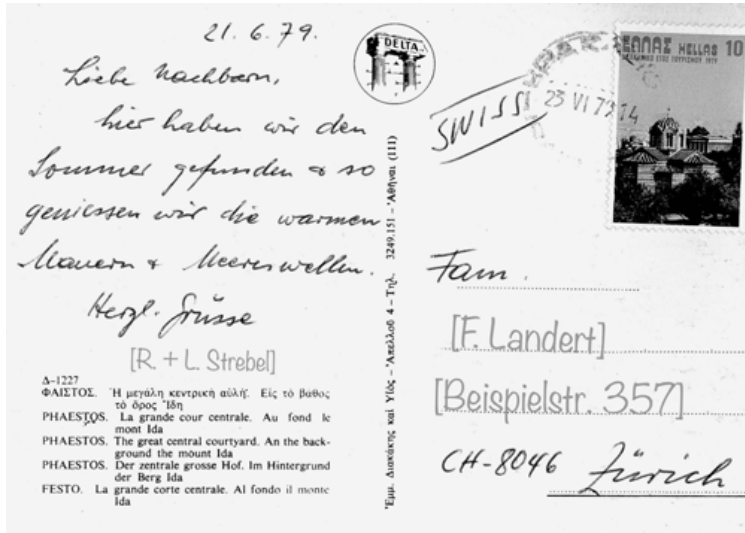 21. 6. 79.
Liebe Nachbarn,
hier haben wir den
Sommer gefunden & so
geniessen wir die warmen
Mauern & Meereswellen.
Herzl. Grüsse
[R. + L. Strebel]
Δ-1227
ΦΑΙΣΤΟΣ. Ἡ μεγάλη κεντρικὴ αὐλή. Εἰς τὸ βάθος
τὸ ὄρος Ἴδη
PHAESTOS. La grande cour centrale. Au fond le
mont Ida
PHAESTOS. The great central courtyard. An the back-
ground the mount Ida
PHAESTOS. Der zentrale grosse Hof. Im Hintergrund
der Berg Ida
FESTO. La grande corte centrale. Al fondo il monte
Ida
DELTA
Ἐμμ. Διακάκης καὶ Υἱός – Ἀπελλοῦ 4 – Τηλ. 3249.151 – Ἀθῆναι (111)
SWISS
23 VI 79 14
ΕΛΛΑΣ HELLAS 10
Fam.
[F. Landert]
[Beispielstr. 357]
CH-8046 Zürich